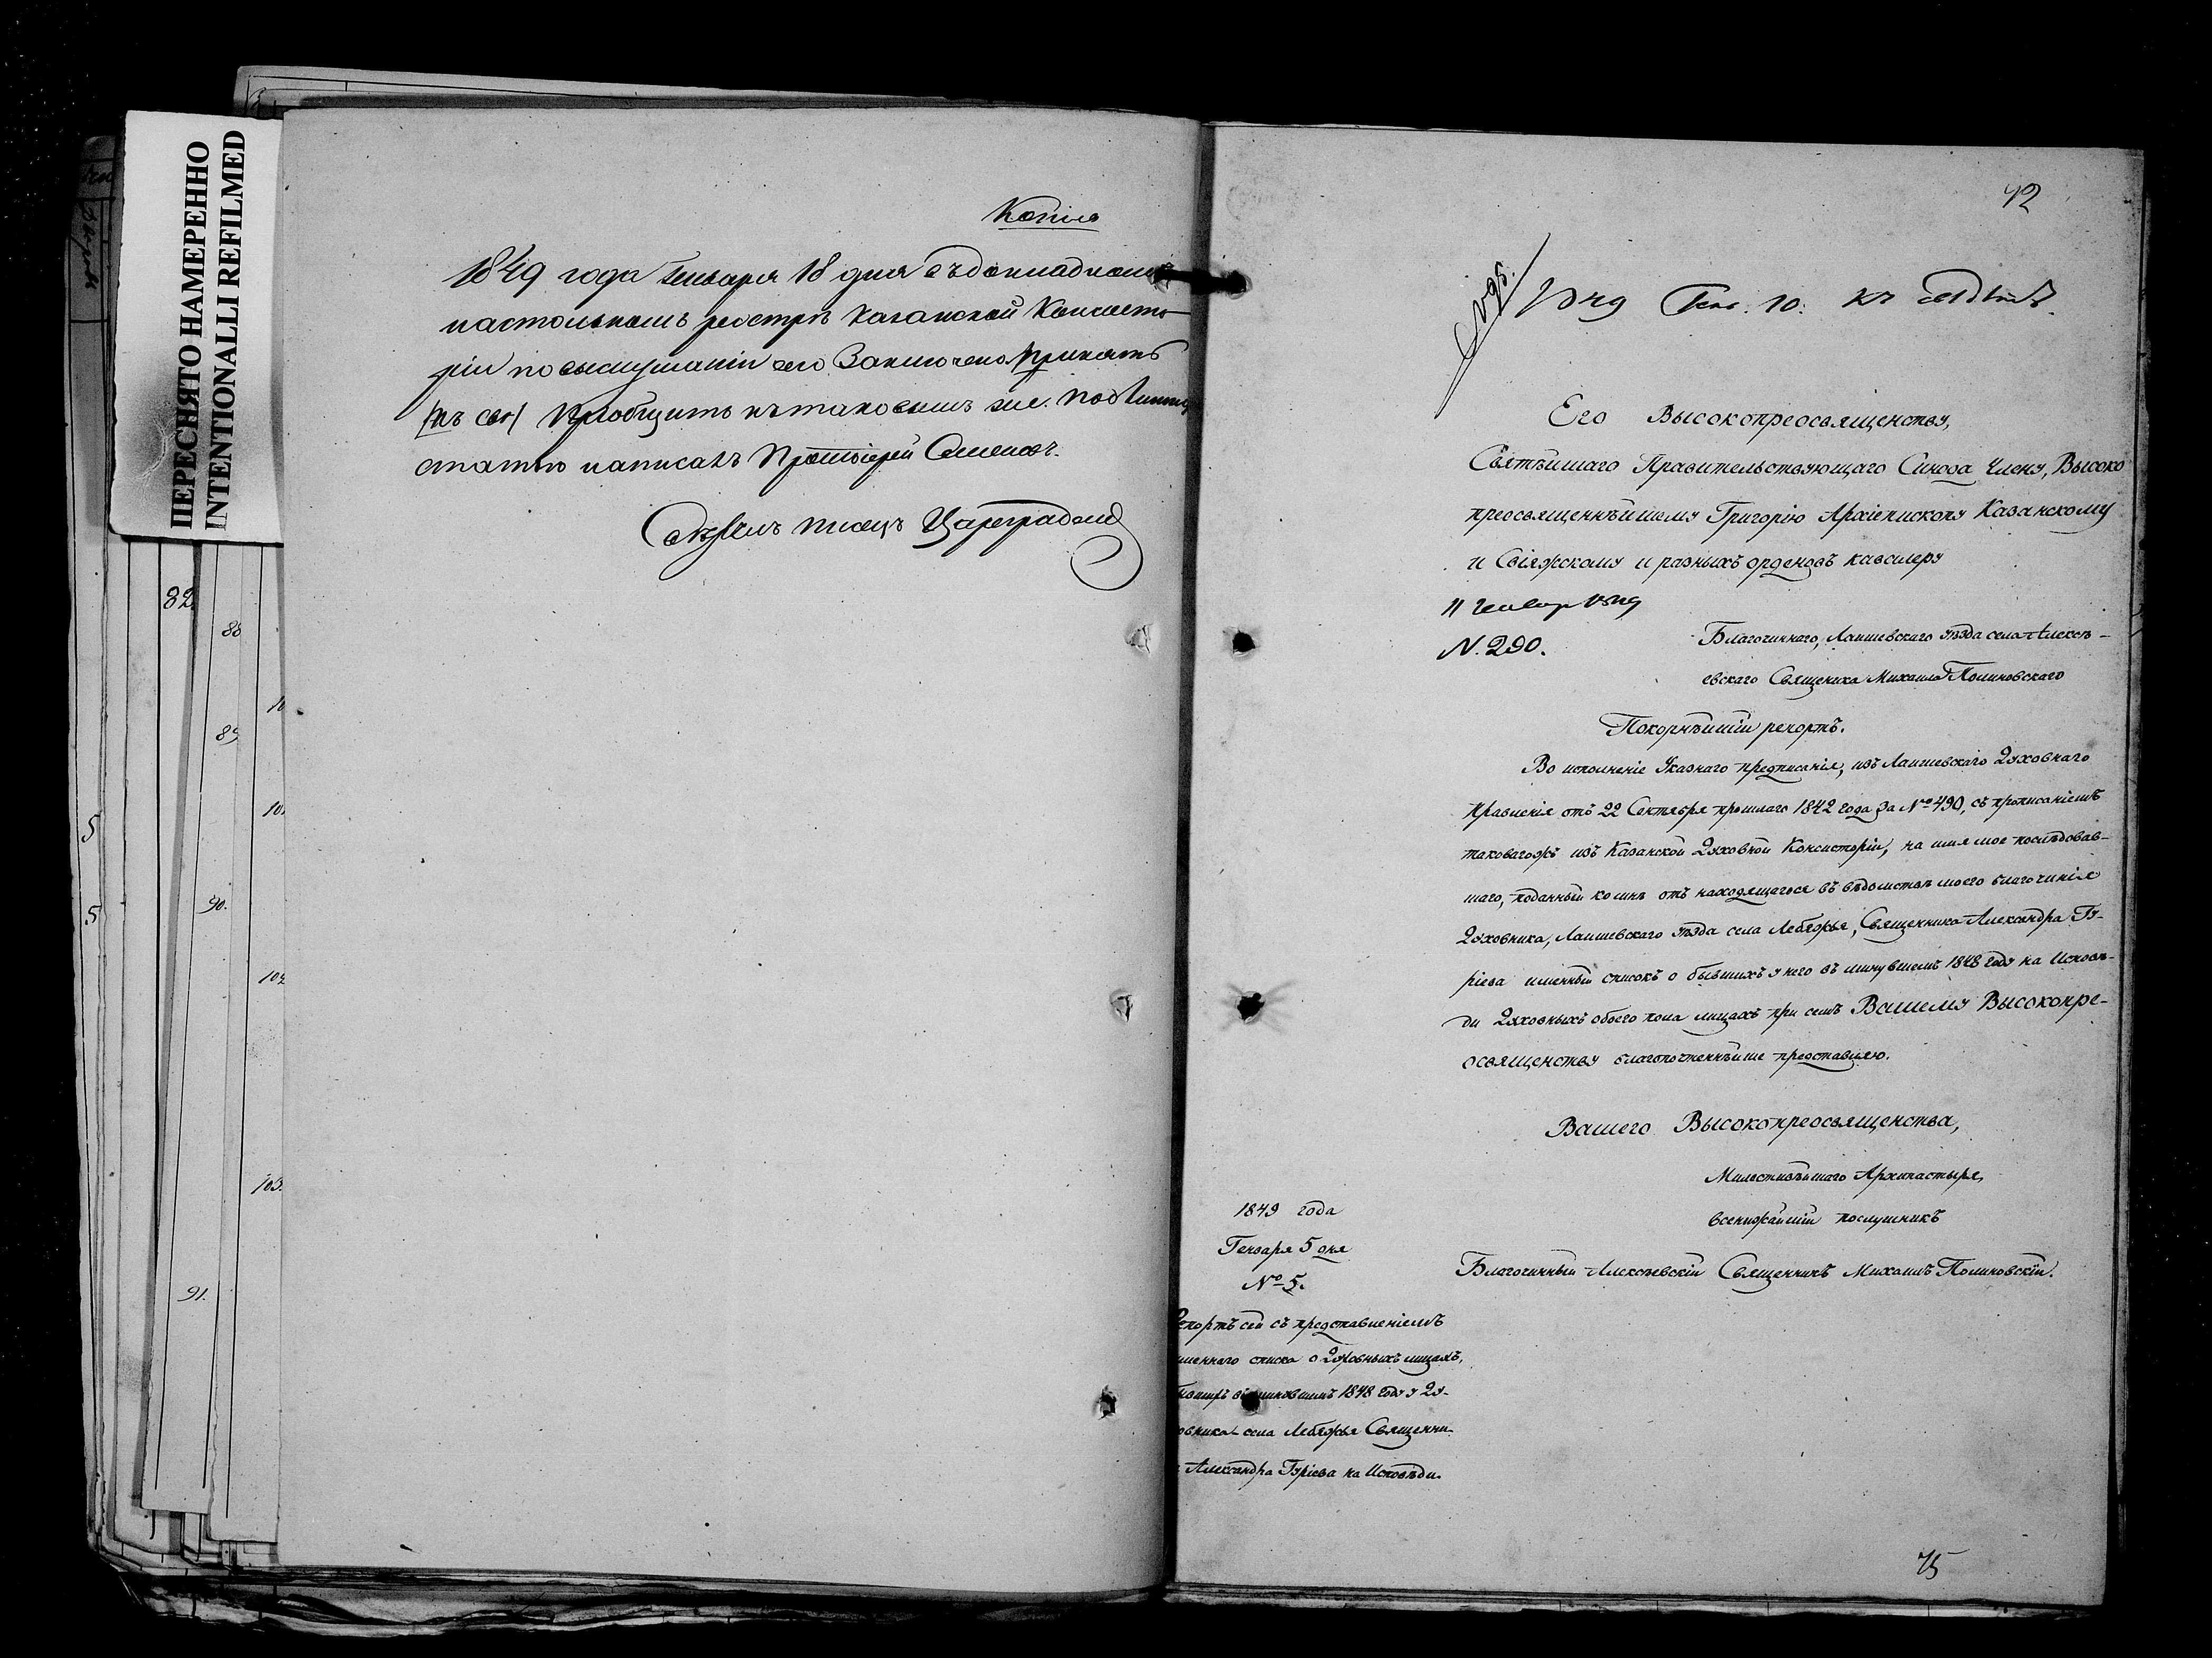 ПЕРЕСНЯТО НАМЕРЕННО
INTENTIONALLI REFILMED
82.
88
89
90.
91.
10
10.
102
103.
5
5
Копія
1849 года Генваря 18 дня въ докладномъ
настольномъ реестрѣ Казанской Консисто-
ріи по выслушаніи его Заключено: /принять
къ свѣ/ Пріобщить къ таковымъ же. Подлинную
статью написалъ Протоіерей Семенов.
Свѣрялъ писецъ Цареградскій
42
1849 Генв. 10. Къ свѣдѣнію.
Его Высокопреосвященству,
Святѣйшаго Правительствующаго Синода Члену, Высоко
преосвященнѣйшему Григорію Архіепископу Казанскому
и Свіяжскому и разныхъ орденовъ кавалеру
11 Генвар 1849
N. 290.
Благочиннаго, Лаишевскаго уѣзда села Алексѣ-
евскаго Священика Михаила Полиновскаго
Покорнѣйшій репортъ.
Во исполненіе Указнаго предписанія, изъ Лаишевскаго Духовнаго
Правленія отъ 22 Сентября прошлаго 1842 года за № 490, съ прописаніемъ
таковагожъ изъ Казанской Духовной Консисторіи, на имя мое послѣдовав-
шаго, поданный ко мнѣ отъ находящагося въ вѣдомствѣ моего благочинія
Духовника, Лаишевскаго уѣзда села Лебяжья, Священника Александра Гу-
ріева именный списокъ о бывшихъ у него въ минувшемъ 1848 году на Исповѣ-
ди Духовныхъ обоего пола лицахъ при семъ Вашему Высокопре-
освященству благопочтеннѣйше представляю.
Вашего Высокопреосвященства,
Милостивѣйшаго Архипастыря,
всенижайшій послушникъ
Благочинный Алексѣевскій Священникъ Михаилъ Полиновскій.
1849 года
Генваря 5 дня
№ 5.
Репортъ сей съ представленіемъ
именнаго списка о Духовныхъ лицахъ,
бывшихъ въ минувшемъ 1848 году у Ду-
овника села Лебяжья Священни-
Александра Гуріева на Исповѣди.
75